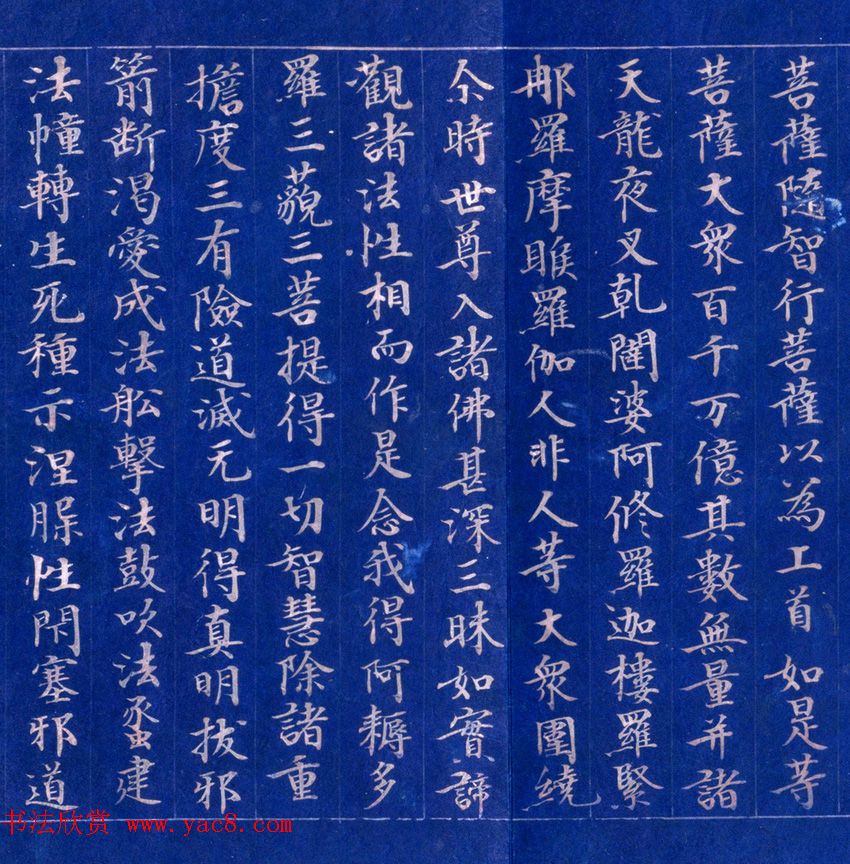 菩薩隨智行菩薩以為上首如是等
菩薩大衆百千万億其數無量并諸
天龍夜叉乹闥婆阿修羅迦樓羅緊
那羅摩睺羅伽人非人等大衆圍繞
尒時世尊入諸佛甚深三昧如實諦
觀諸法性相而作是念我得阿耨多
羅三藐三菩提得一切智慧除諸重
擔度三有險道滅无明得真明拔邪
箭断渴愛成法舩擊法鼓吹法蠡建
法幢轉生死種示涅脲性閇塞邪道
书法欣赏 www.yac8.com